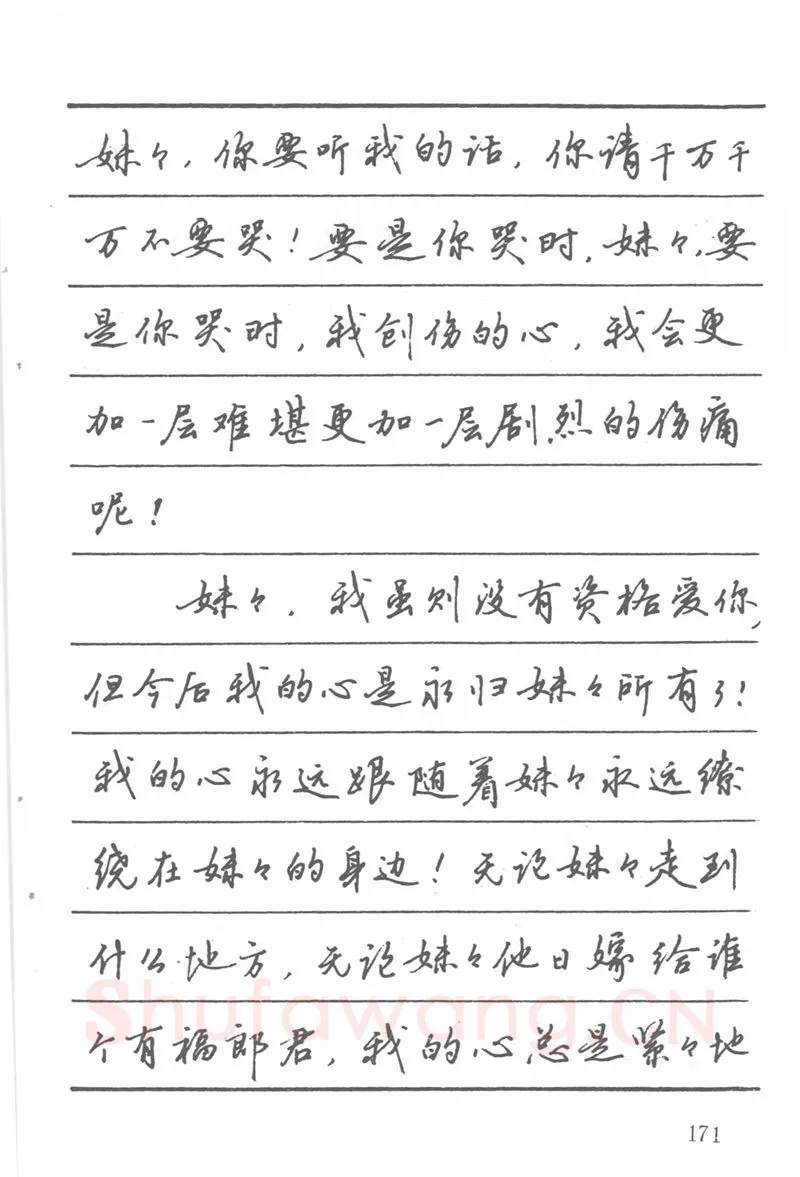 妹々，你要听我的话，你请千万千
万不要哭！要是你哭时，妹々，要
是你哭时，我创伤的心，我会更
加一层难堪更加一层剧烈的伤痛
呢！
妹々，我虽则没有资格爱你，
但今后我的心是永归妹々所有了！
我的心永远跟随着妹々永远缭
绕在妹々的身边！无论妹々走到
什么地方，无论妹々他日嫁给谁
个有福郎君，我的心总是紧々地
Shufawang.CN
171